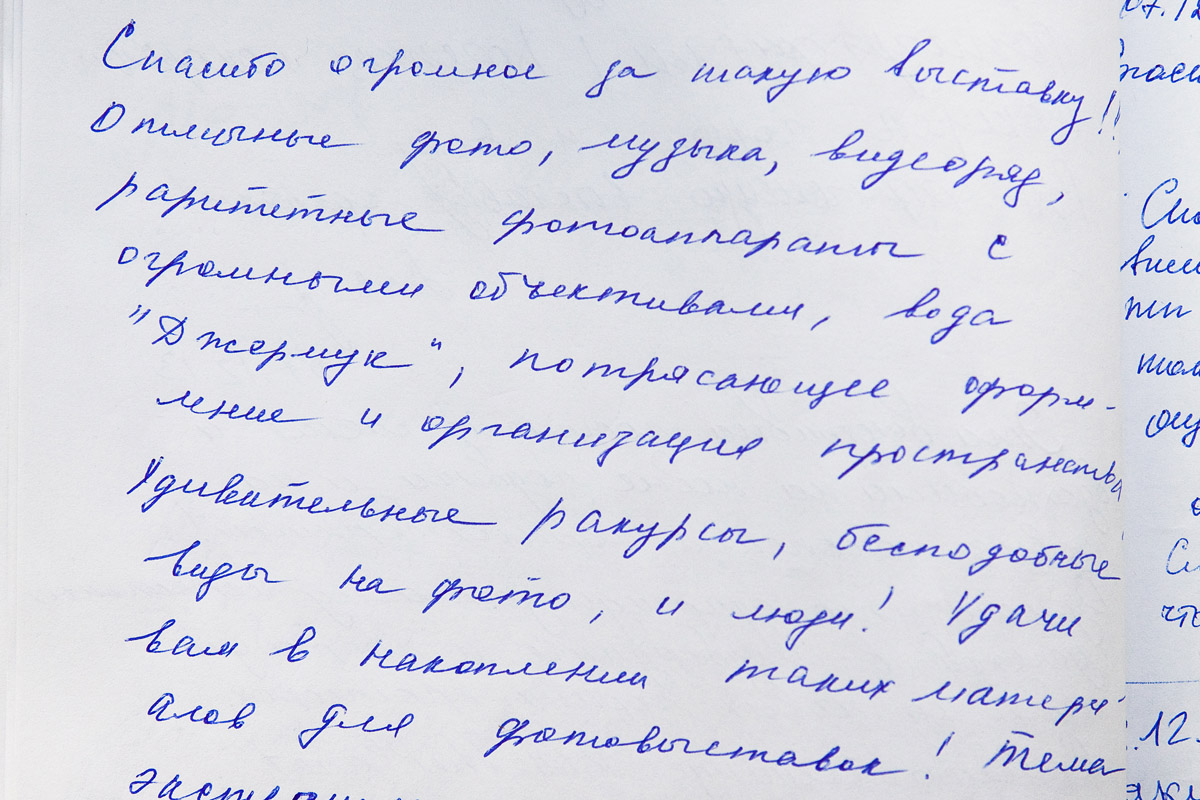 Спасибо огромное за такую выставку!!
Отличные фото, музыка, видеоряд,
раритетные фотоаппараты с
огромными объективами, вода
"Джермук", потрясающее оформ-
ление и организация пространства
Удивительные ракурсы, бесподобные
виды на фото, и люди! Удачи
вам в накоплении таких матери
алов для фотовыставок! Тема
12.